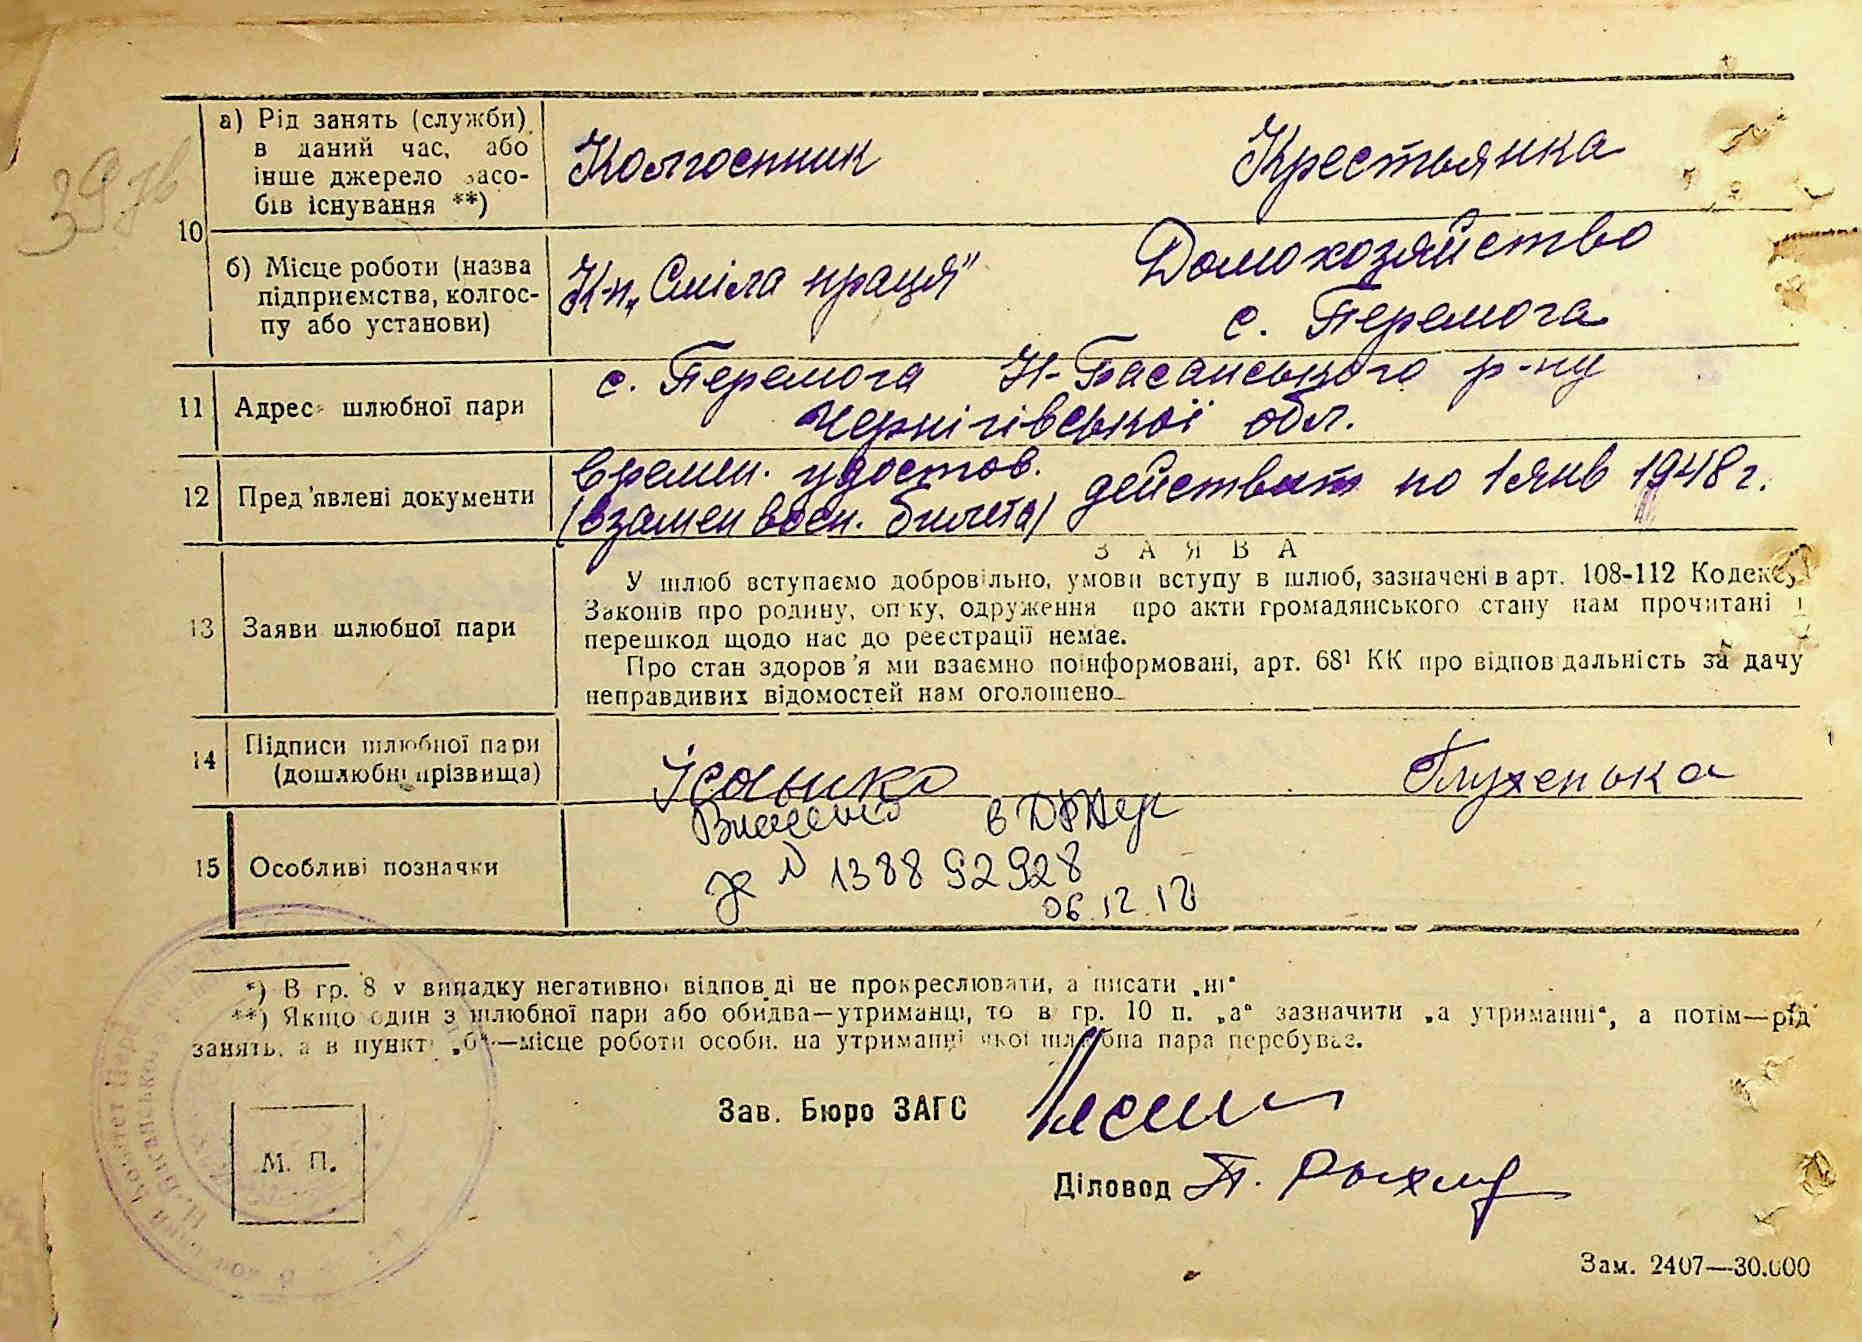 а) Рід занять (служби)
в даний час, або
інше джерело засо-
бів існування **)
Колгоспник
Крестьянка
10
б) Місце роботи (назва
підприємства, колгос-
пу або установи)
К-п „Сміла праця"
Домохозяйство
с. Перемога
11
Адрес шлюбної пари
с. Перемога Н-Басанського р-ну
Чернігівської обл.
12
Пред'явлені документи
Времен. удостов.
(взамен воен. билета) действит по 1 янв 1948 г.
13
Заяви шлюбної пари
ЗАЯВА
У шлюб вступаємо добровільно, умови вступу в шлюб, зазначені в арт. 108-112 Кодексу
Законів про родину, опіку, одруження про акти громадянського стану нам прочитані і
перешкод щодо нас до реєстрації немає.
Про стан здоров'я ми взаємно поінформовані, арт. 68¹ КК про відповідальність за дачу
неправдивих відомостей нам оголошено
14
Підписи шлюбної пари
(дошлюбні прізвища)
Ісанько
Глухенька
15
Особливі позначки
Внесено в ДРАЦС
№ 138892928
06.12.12
*) В гр. 8 у випадку негативної відповіді не прокреслювати, а писати „ні"
**) Якщо один з шлюбної пари або обидва—утриманці, то в гр. 10 п. „а" зазначити „а утриманні", а потім—рід
занять, а в пункті „б"—місце роботи особи, на утриманні якої шлюбна пара перебуває.
Зав. Бюро ЗАГС
М. П.
Діловод П.
Зам. 2407—30.000